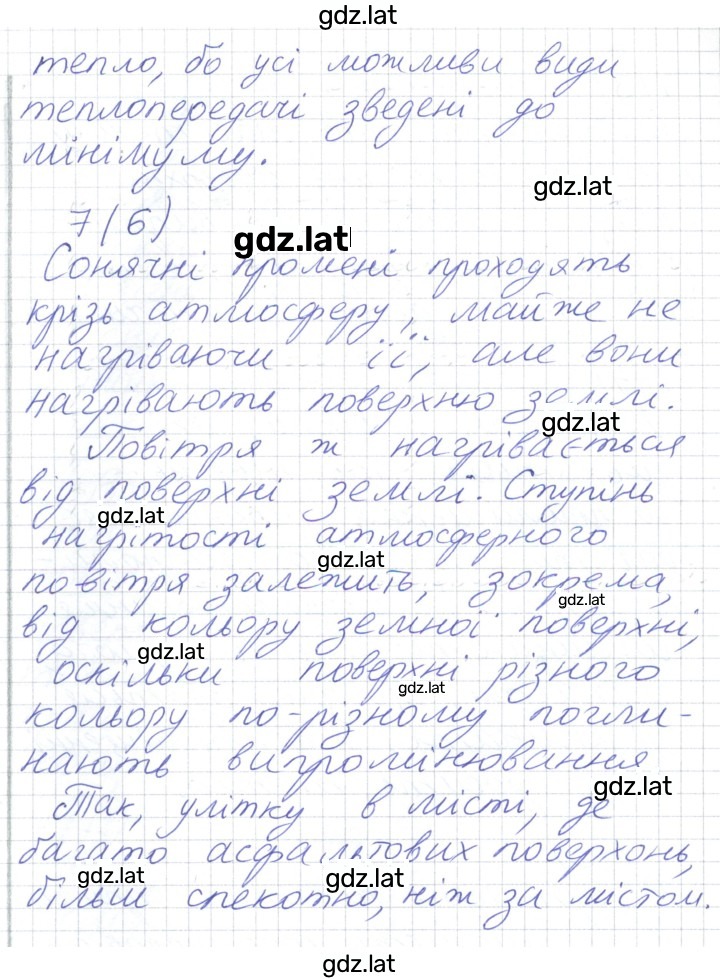 gdz.lat
тепло, бо усі можливи види
теплопередачі зведені до
мінімуму.
gdz.lat
7(6)
gdz.lat
Сонячні промені проходять
крізь атмосферу, майже не
нагріваючи її, але вони
нагрівають поверхню землі.
gdz.lat
Повітря ж нагрівається
від поверхні землі. Ступінь
gdz.lat
нагрітості атмосферного
gdz.lat
повітря залежить, зокрема,
gdz.lat
від кольору земної поверхні,
gdz.lat
оскільки поверхні різного
gdz.lat
кольору по-різному погли-
нають випромінювання
gdz.lat
Так, улітку в місті, де
багато асфальтових поверхонь,
gdz.lat
gdz.lat
більш спекотно, ніж за містом.
gdz.lat